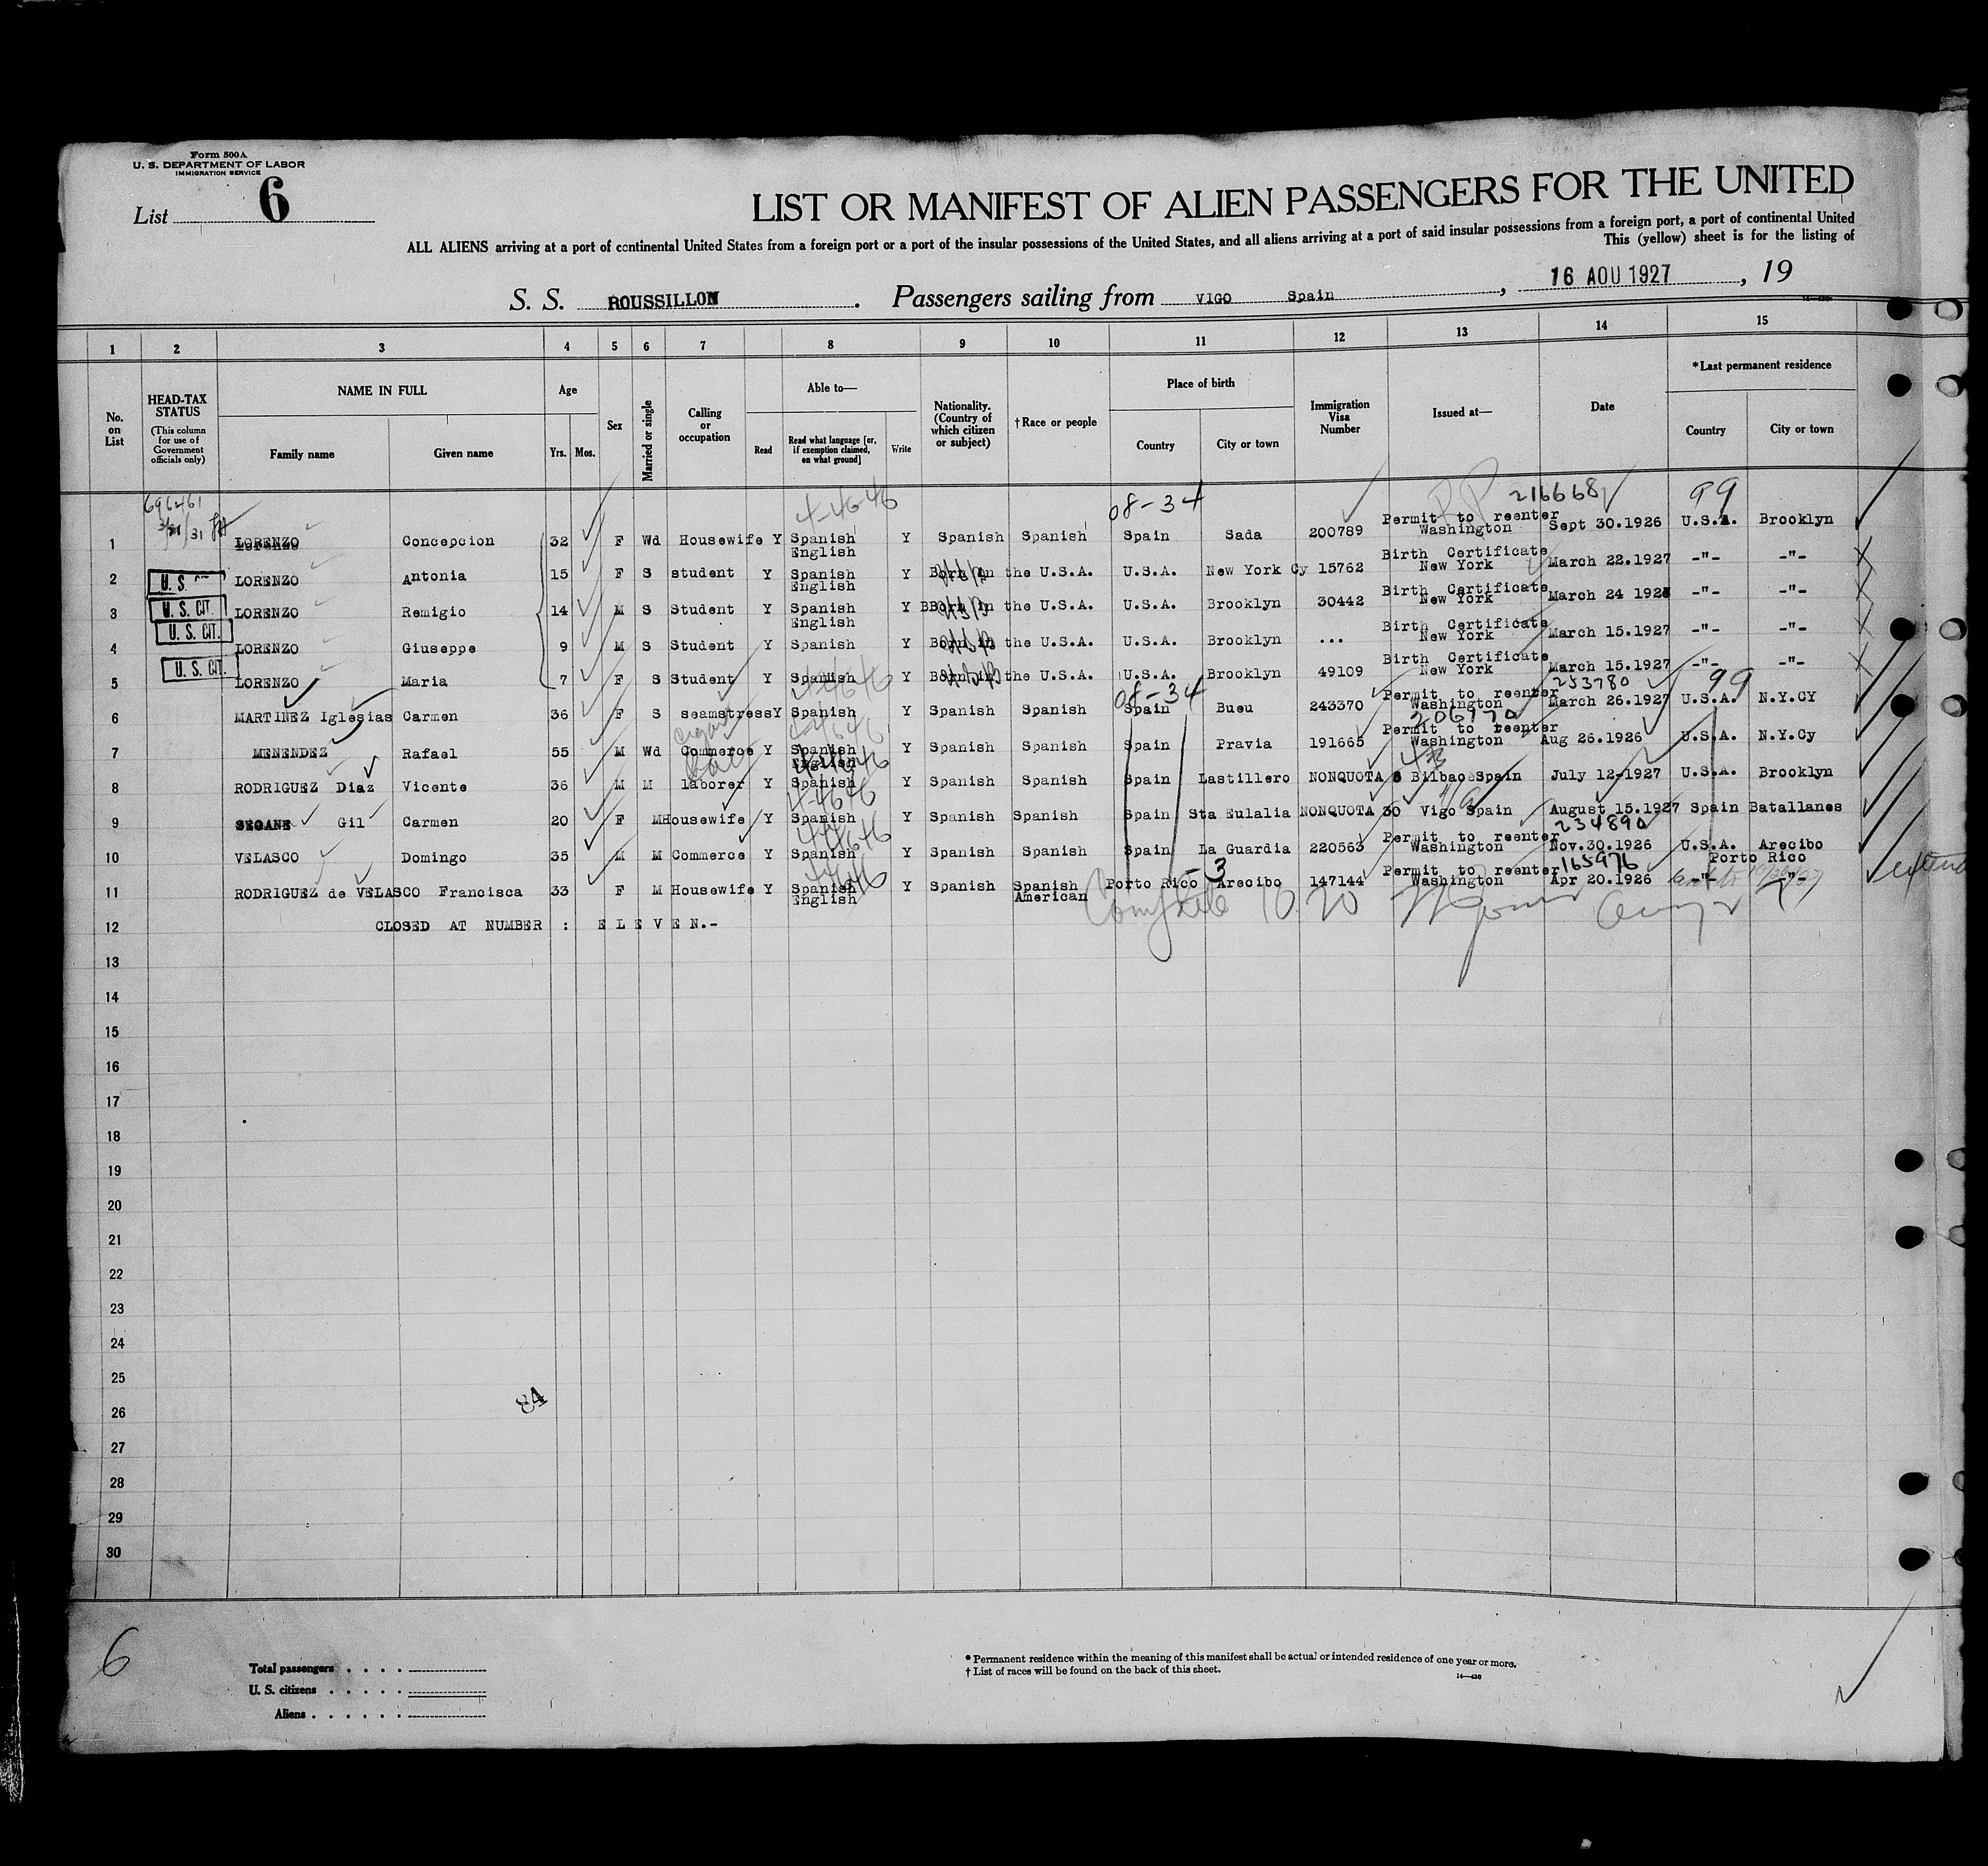 Form 500A
U. S. DEPARTMENT OF LABOR
IMMIGRATION SERVICE
List 6
LIST OR MANIFEST OF ALIEN PASSENGERS FOR THE UNITED
ALL ALIENS arriving at a port of continental United States from a foreign port or a port of the insular possessions of the United States, and all aliens arriving at a port of said insular possessions from a foreign port, a port of continental United
This (yellow) sheet is for the listing of
S. S. ROUSSILLON. Passengers sailing from VIGO Spain, 16 AOU 1927, 19
1 2 3 4 5 6 7 8 9 10 11 12 13 14 15
No. on List
HEAD-TAX STATUS
(This column for use of Government officials only)
NAME IN FULL
Family name
Given name
Age
Yrs.
Mos.
Sex
Married or single
Calling or occupation
Able to—
Read
Read what language [or, if exemption claimed, on what ground]
Write
Nationality. (Country of which citizen or subject)
†Race or people
Place of birth
Country
City or town
Immigration Visa Number
Issued at—
Date
*Last permanent residence
Country
City or town
696461 4-46-46 08-34 P.P. 216668 99
1 LORENZO Concepcion 32 F Wd Housewife Y Spanish English Y Spanish Spanish Spain Sada 200789 Permit to reenter Washington Sept 30.1926 U.S.A. Brooklyn
2 U.S. LORENZO Antonia 15 F S student Y Spanish English Y Born in the U.S.A. U.S.A. New York Cy 15762 Birth Certificate New York March 22.1927 -"- -"-
3 U.S. CIT. LORENZO Remigio 14 M S Student Y Spanish English Y BBorn in the U.S.A. U.S.A. Brooklyn 30442 Birth Certificate New York March 24 192 -"- -"-
U.S. CIT.
4 LORENZO Giuseppe 9 M S Student Y Spanish Y Born in the U.S.A. U.S.A. Brooklyn ... Birth Certificate New York March 15.1927 -"- -"-
5 U.S. CIT. LORENZO Maria 7 F S Student Y Spanish Y Born in the U.S.A. U.S.A. Brooklyn 49109 Birth Certificate New York March 15.1927 -"- -"-
08-34 253780 99
6 MARTINEZ Iglesias Carmen 36 F S seamstress Y Spanish Y Spanish Spanish Spain Bueu 243370 Permit to reenter Washington March 26.1927 U.S.A. N.Y.CY
206970
7 MENENDEZ Rafael 55 M Wd Commerce Y Spanish English Y Spanish Spanish Spain Pravia 191665 Permit to reenter Washington Aug 26.1926 U.S.A. N.Y.Cy
8 RODRIGUEZ Diaz Vicente 36 M M laborer Y Spanish Y Spanish Spanish Spain Lastillero NONQUOTA 8 Bilbao Spain July 12-1927 U.S.A. Brooklyn
9 SEOANE Gil Carmen 20 F M Housewife Y Spanish Y Spanish Spanish Spain Sta Eulalia NONQUOTA 30 Vigo Spain August 15.1927 Spain Batallanes
234890
10 VELASCO Domingo 35 M M Commerce Y Spanish Y Spanish Spanish Spain La Guardia 220563 Permit to reenter Washington Nov.30.1926 U.S.A. Arecibo Porto Rico
165976
11 RODRIGUEZ de VELASCO Francisca 33 F M Housewife Y Spanish English Y Spanish Spanish American Porto Rico Arecibo 147144 Permit to reenter Washington Apr 20.1926 -"- -"-
12 CLOSED AT NUMBER : E L E V E N.-
13
14
15
16
17
18
19
20
21
22
23
24
25
26
27
28
29
30
84
6
Total passengers
U. S. citizens
Aliens
* Permanent residence within the meaning of this manifest shall be actual or intended residence of one year or more.
† List of races will be found on the back of this sheet.